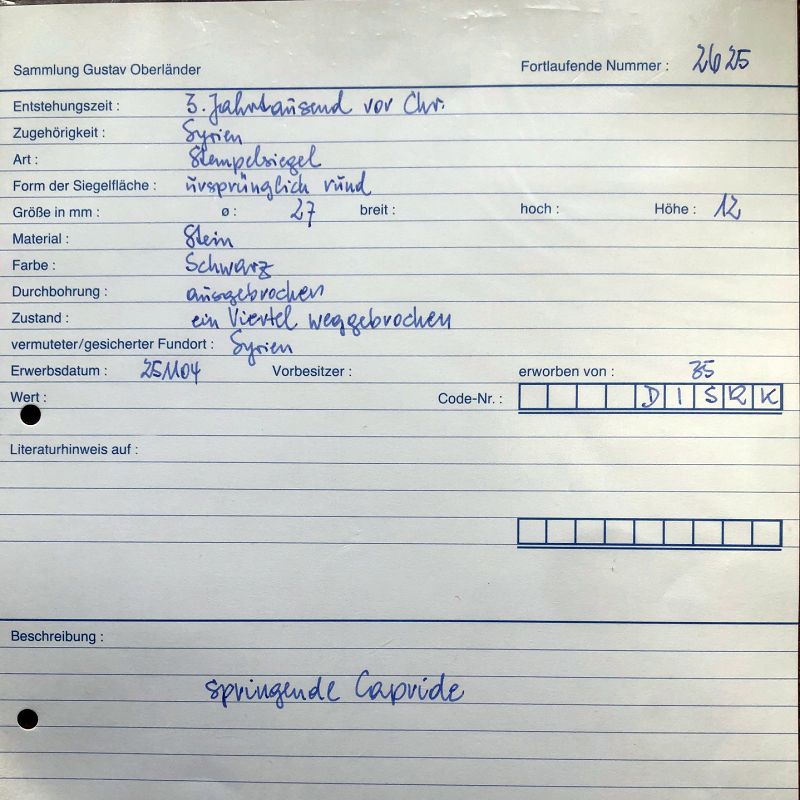 Sammlung Gustav Oberländer Fortlaufende Nummer : 2625
Entstehungszeit : 3. Jahrtausend vor Chr.
Zugehörigkeit : Syrien
Art : Stempelsiegel
Form der Siegelfläche : ursprünglich rund
Größe in mm : ø : 27 breit : hoch : Höhe : 12
Material : Stein
Farbe : Schwarz
Durchbohrung : ausgebrochen
Zustand : ein Viertel weggebrochen
vermuteter/gesicherter Fundort : Syrien
Erwerbsdatum : 251104 Vorbesitzer : erworben von : 35
Wert : Code-Nr. : D I S R K
Literaturhinweis auf :
Beschreibung :
springende Capride